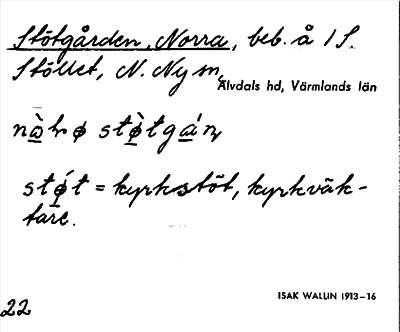 Stötgården, Norra, beb. å 1 S.
Stöllet, N. Ny sn,
Älvdals hd, Värmlands län
stǿt = kyrkstöt, kyrkväk-
tare.
ISAK WALLIN 1913–16
22